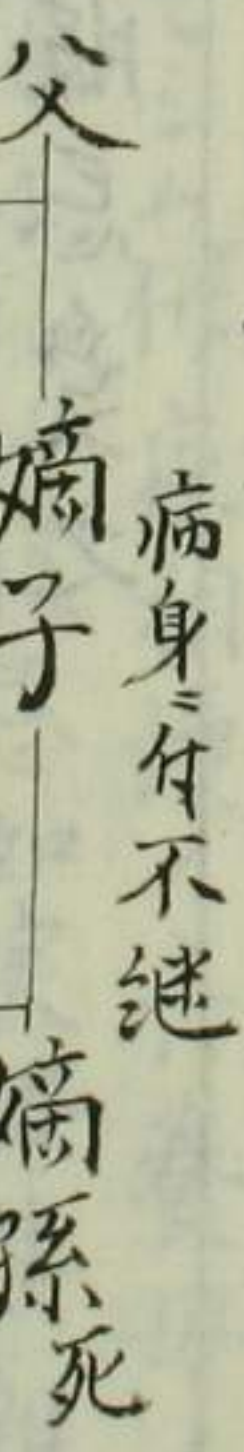 病身ニ付不継
父
嫡子
嫡孫死